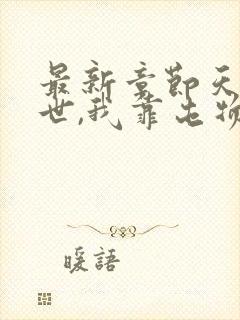 最新章節天
世,我靠屯物
暖語